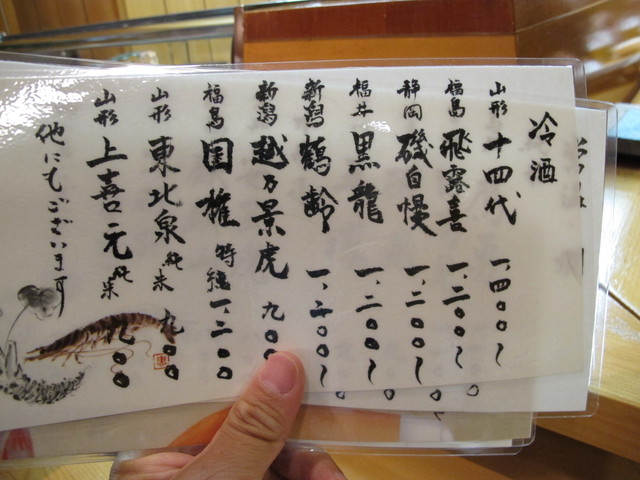 冷酒
山形 十四代 一、四〇〇〜
福島 飛露喜 一、二〇〇〜
静岡 磯自慢 一、二〇〇〜
福井 黒龍 一、二〇〇〜
新潟 鶴齢 一、二〇〇〜
新潟 越乃景虎 九〇〇
福島 国権 特純 一、二〇〇
山形 東北泉 純米 九〇〇
山形 上喜元 純米 九〇〇
他にてございます